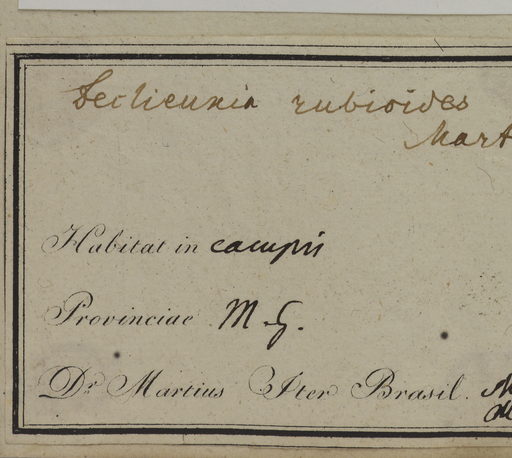 Declieuxia rubioides
Mart
Habitat in campis
Provinciae M. G.
Dr Martius Iter Brasil.